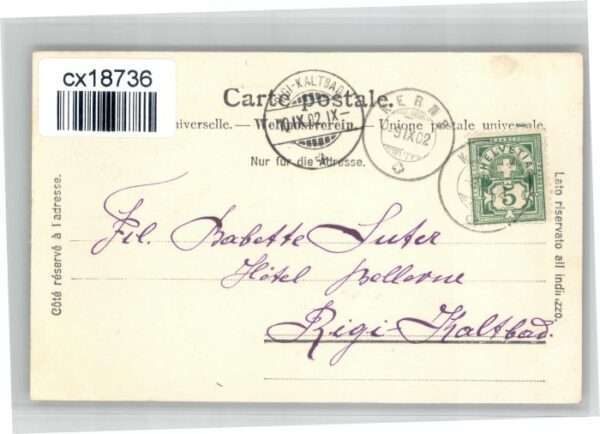 cx18736
Carte postale.
universelle. — Weltpostverein. — Union postale universale
Nur für die Adresse.
RIGI-KALTBAD
10.IX.02.IX—
LUZERN
-9.IX.02
HELVETIA
5
Côté réservé à l'adresse.
Lato riservato all' indirizzo.
Frl. Babette Suter
Hôtel Bellevue
Rigi-Kaltbad.